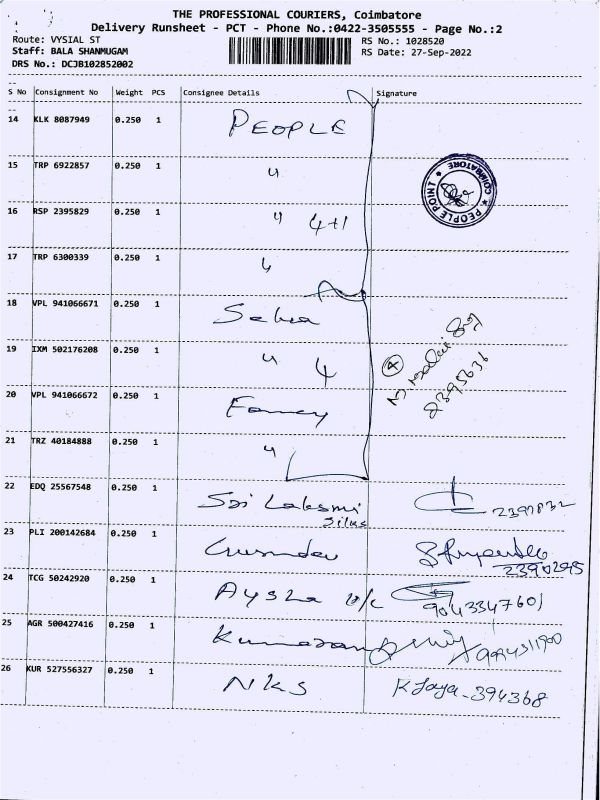 THE PROFESSIONAL COURIERS, Coimbatore
Delivery Runsheet - PCT - Phone No.:0422-3505555 - Page No.:2
Route: VYSIAL ST
RS No.: 1028520
Staff: BALA SHANMUGAM
RS Date: 27-Sep-2022
DRS No.: DCJB102852002
S No Consignment No Weight PCS Consignee Details Signature
14 KLK 8087949 0.250 1 PEOPLE
15 TRP 6922857 0.250 1 "
PEOPLE POINT * COIMBATORE *
16 RSP 2395829 0.250 1 " 4+1
17 TRP 6300339 0.250 1 "
18 VPL 941066671 0.250 1
19 IXM 502176208 0.250 1 " 4 4
2395631
20 VPL 941066672 0.250 1 Fancy
21 TRZ 40184888 0.250 1 "
22 EDQ 25567548 0.250 1 Sri Laksmi
Silks
23 PLI 200142684 0.250 1
2390295
24 TCG 50242920 0.250 1 Aysha 9043347601
25 AGR 500427416 0.250 1 Kumaran
26 KUR 527556327 0.250 1 NKS K Jaya-394368